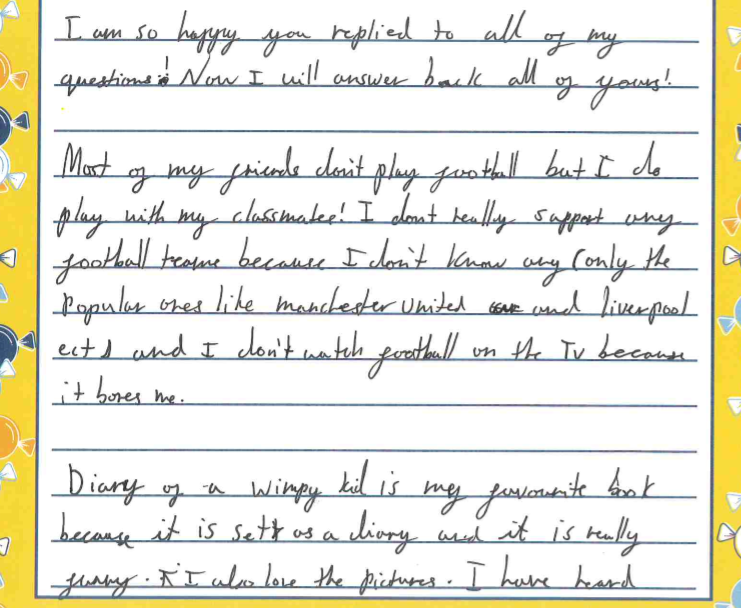 I am so happy you replied to all of my
questions! Now I will answer back all of yours!
Most of my friends don't play football but I do
play with my classmates! I don't really support any
football teams because I don't know any (only the
Popular ones like manchester United and liverpool
ect) and I don't watch football on the Tv because
it bores me.
Diary of a wimpy kid is my favourite book
because it is set as a diary and it is really
funny. I also love the pictures. I have heard